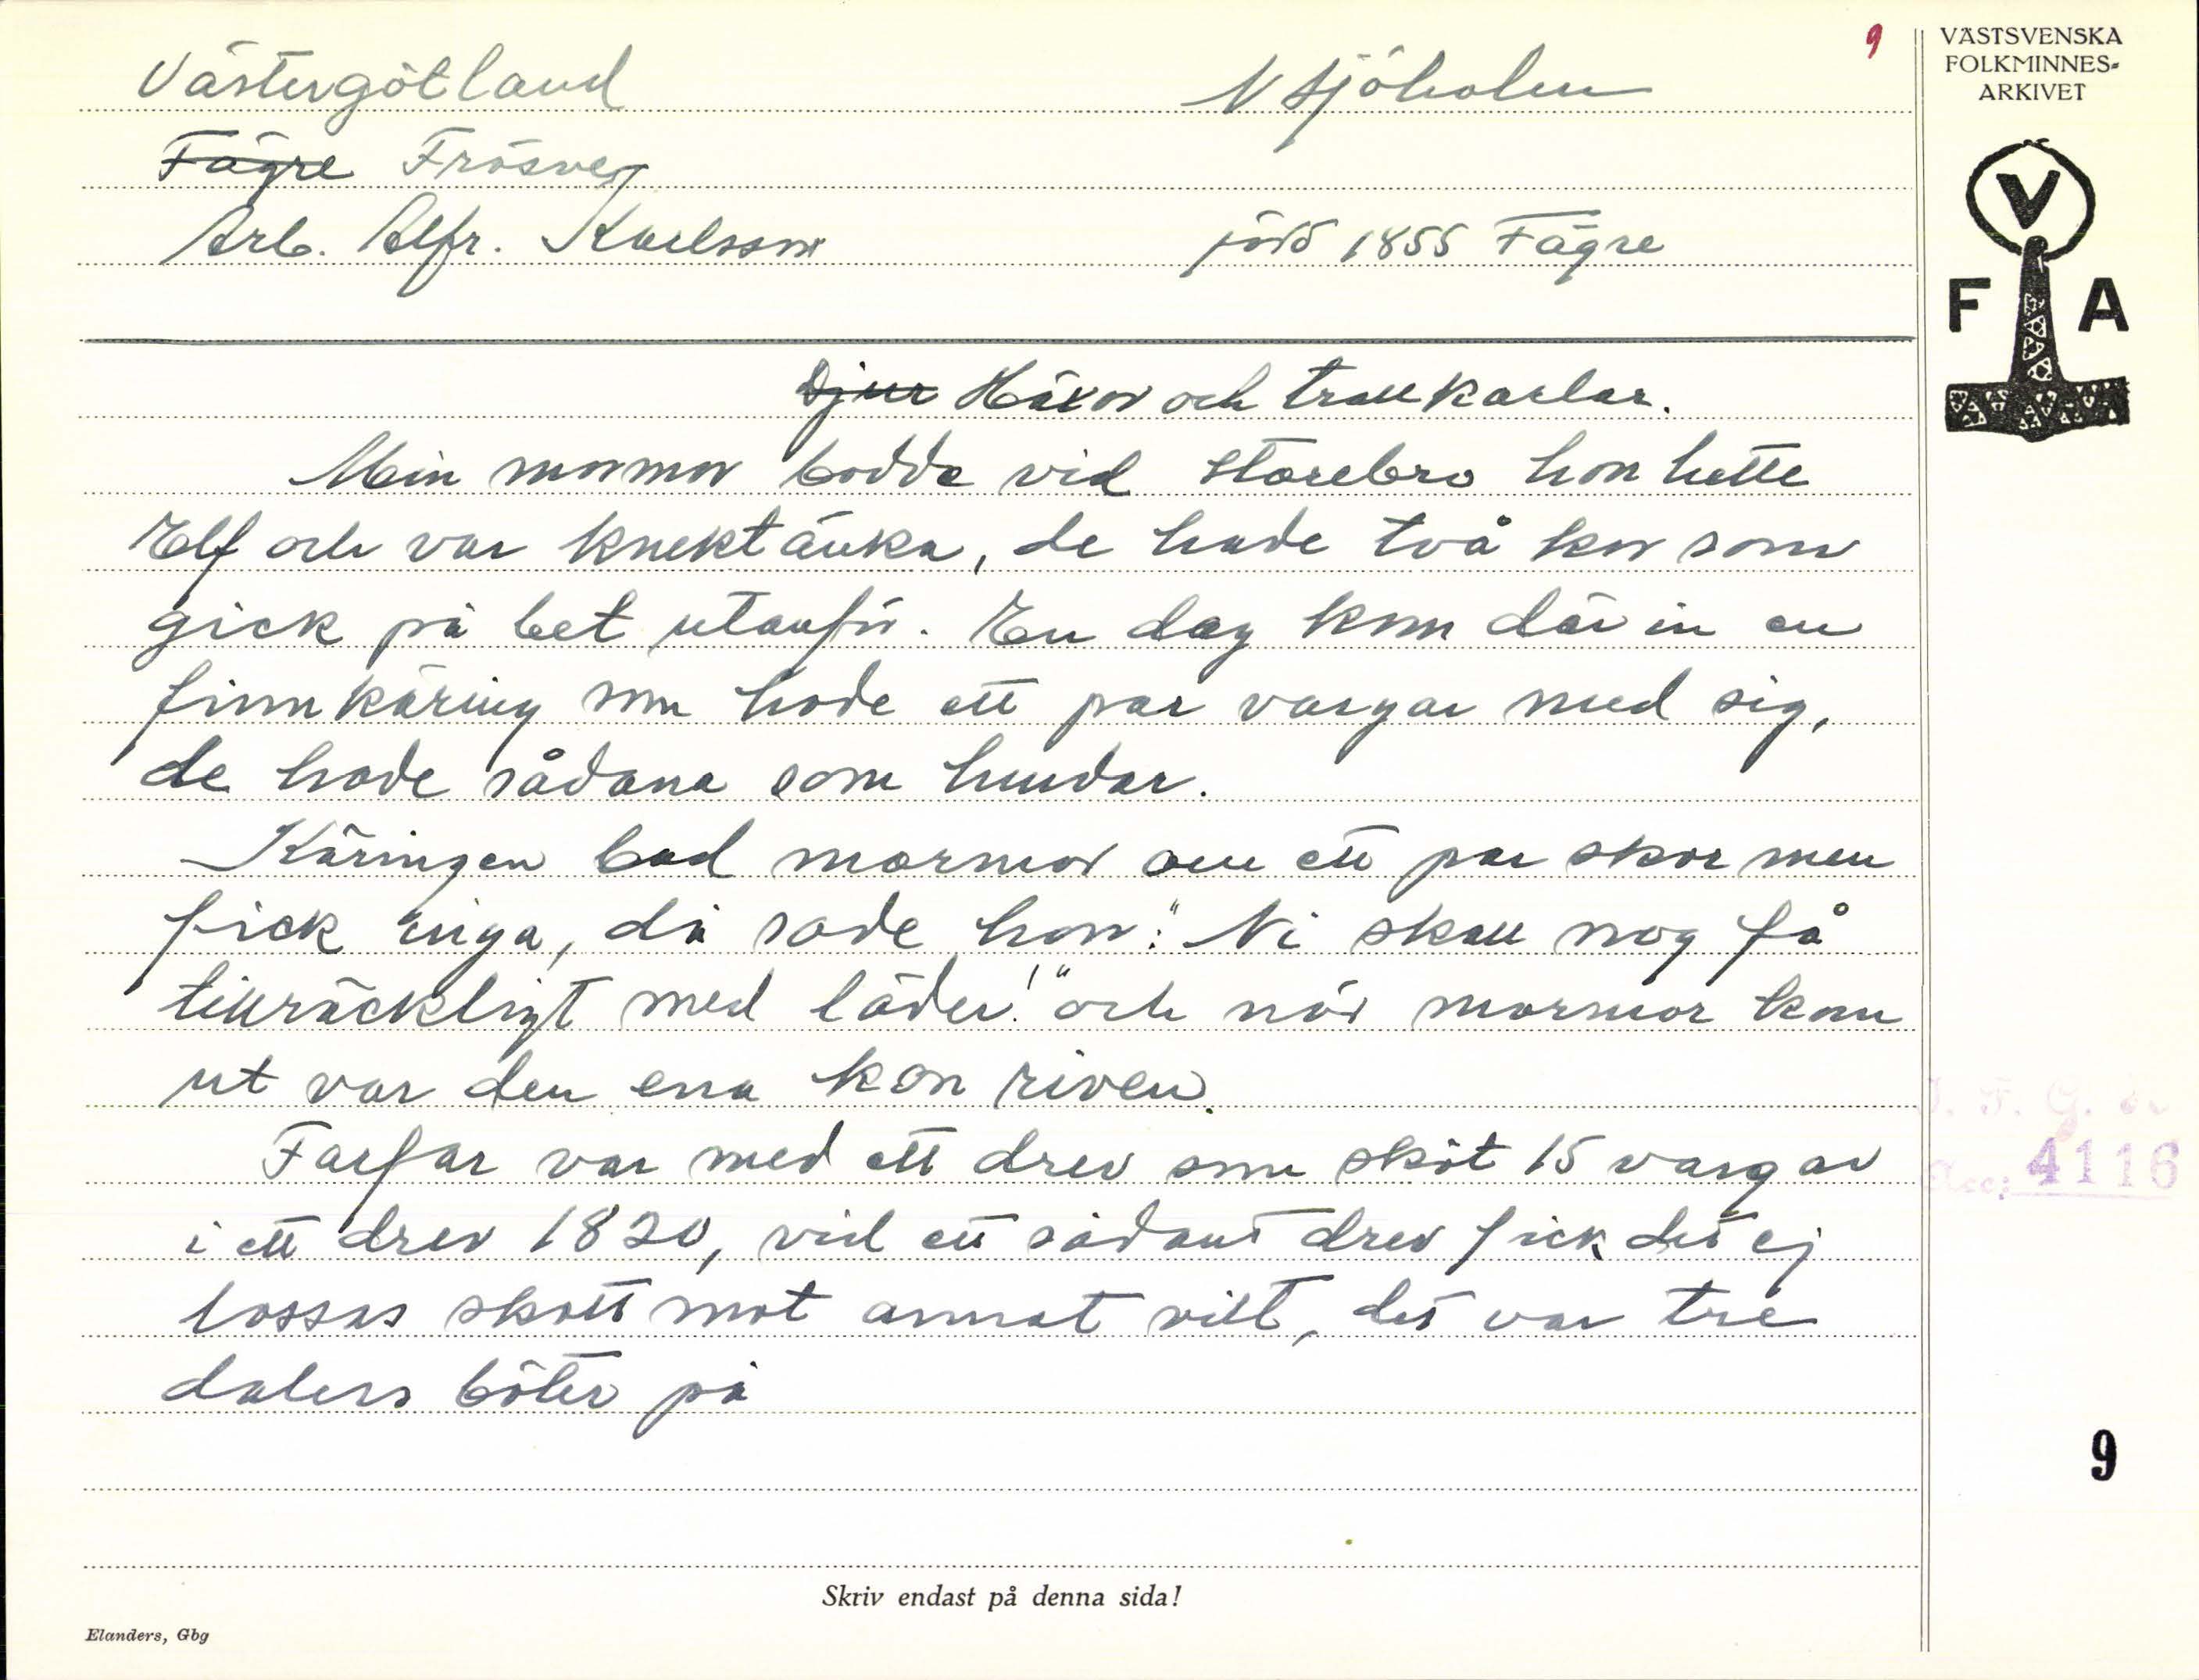 Västergötland
N Sjöholm
9
Fägre Frösve
Arb. Alfr. Karlsson
född 1855 Fägre
Djur Häxor och trollkarlar.
Min mormor bodde vid Storebro hon hette
Elf och var knektänka, de hade två kor som
gick på bet utanför. En dag kom där in en
finnkäring som hade ett par vargar med sig,
de hade sådana som hundar.
Käringen bad mormor om ett par skor men
fick inga, då sade hon: "Ni skall nog få
tillräckligt med läder!" och när mormor kom
ut var den ena kon riven.
Farfar var med ett drev som sköt 15 vargar
i ett drev 1820, vid ett sådant drev fick det ej
lossas skott mot annat vilt, det var tre
dalers böter på
Skriv endast på denna sida!
Elanders, Gbg
VÄSTSVENSKA
FOLKMINNES-
ARKIVET
V
F A
Acc: 4116
9